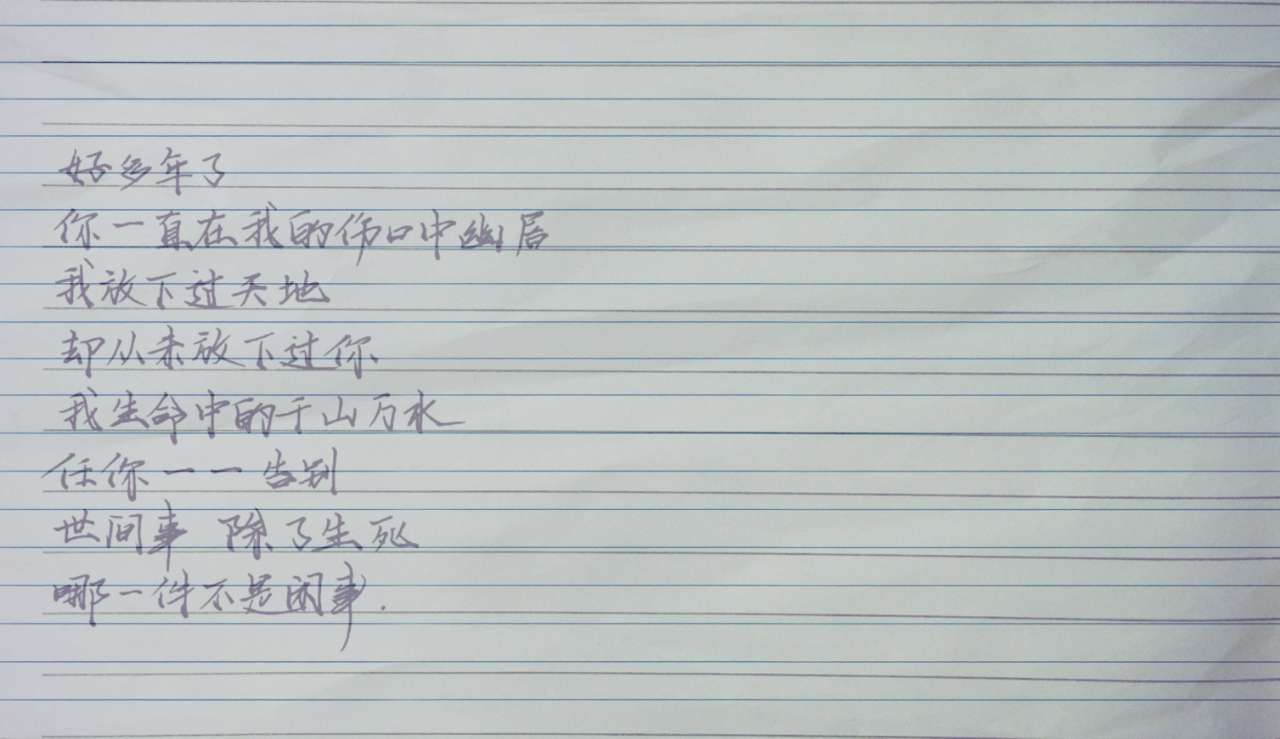 好多年了
你一直在我的伤口中幽居
我放下过天地
却从未放下过你
我生命中的千山万水
任你一一告别
世间事 除了生死
哪一件不是闲事.